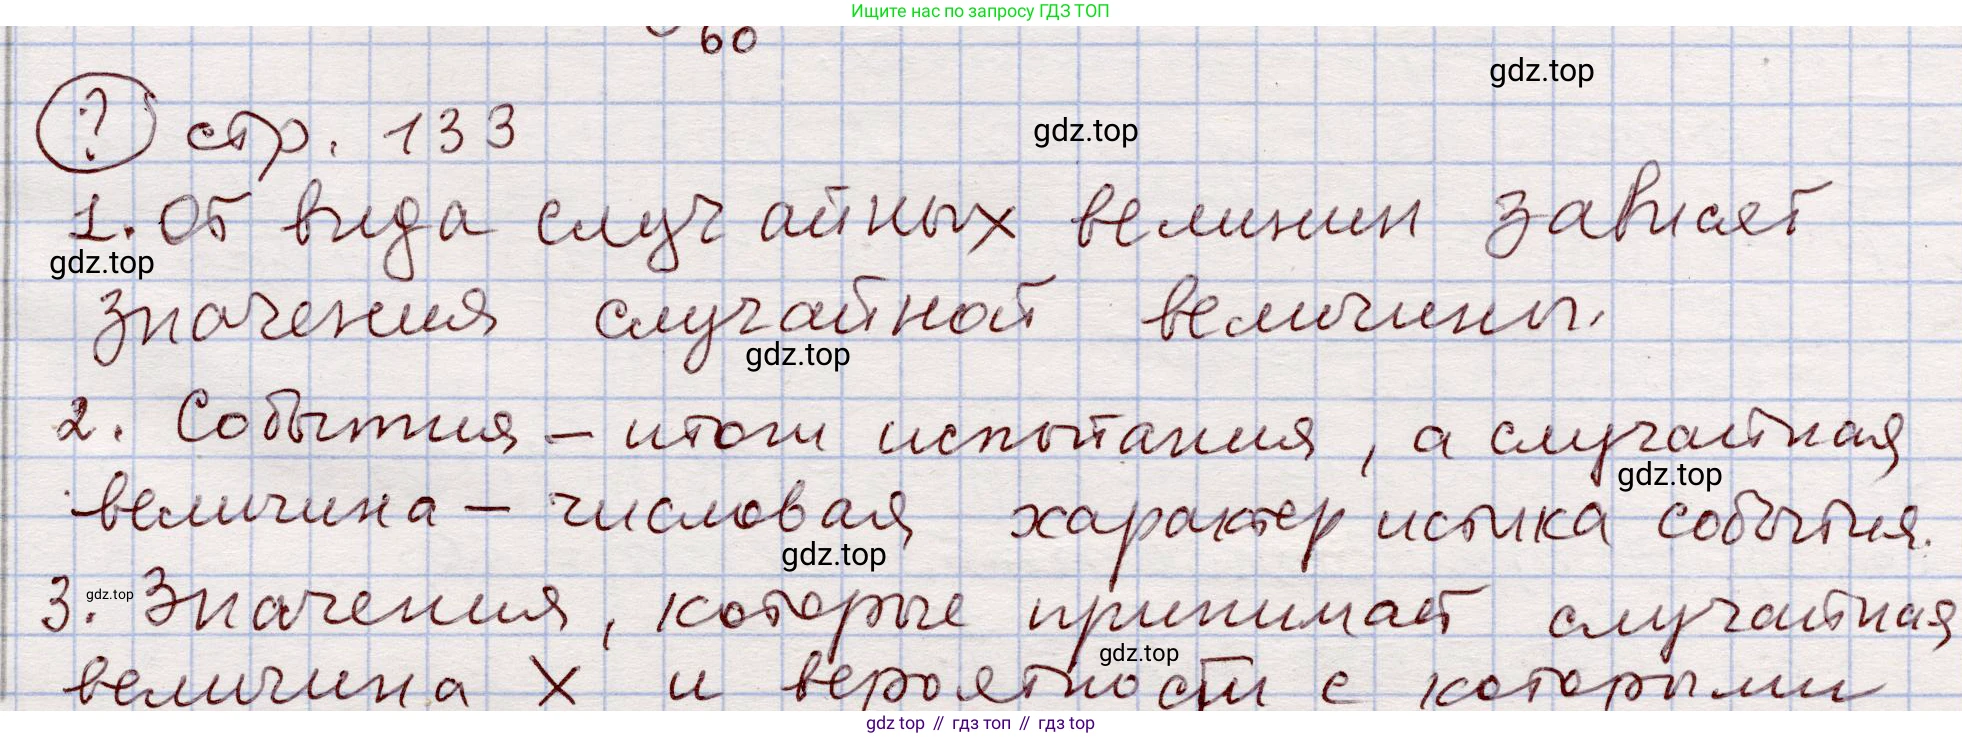 Ищите нас по запросу ГДЗ ТОП
60
gdz.top
? стр. 133
gdz.top
1. От вида случайных величин зависят
gdz.top
значения случайной величины.
gdz.top
2. События – итог испытания, а случайная
gdz.top
величина – числовая характеристика события.
gdz.top
3. Значения, которые принимает случайная
gdz.top
gdz.top
величина X и вероятности с которыми
gdz top // гдз топ // гдз top